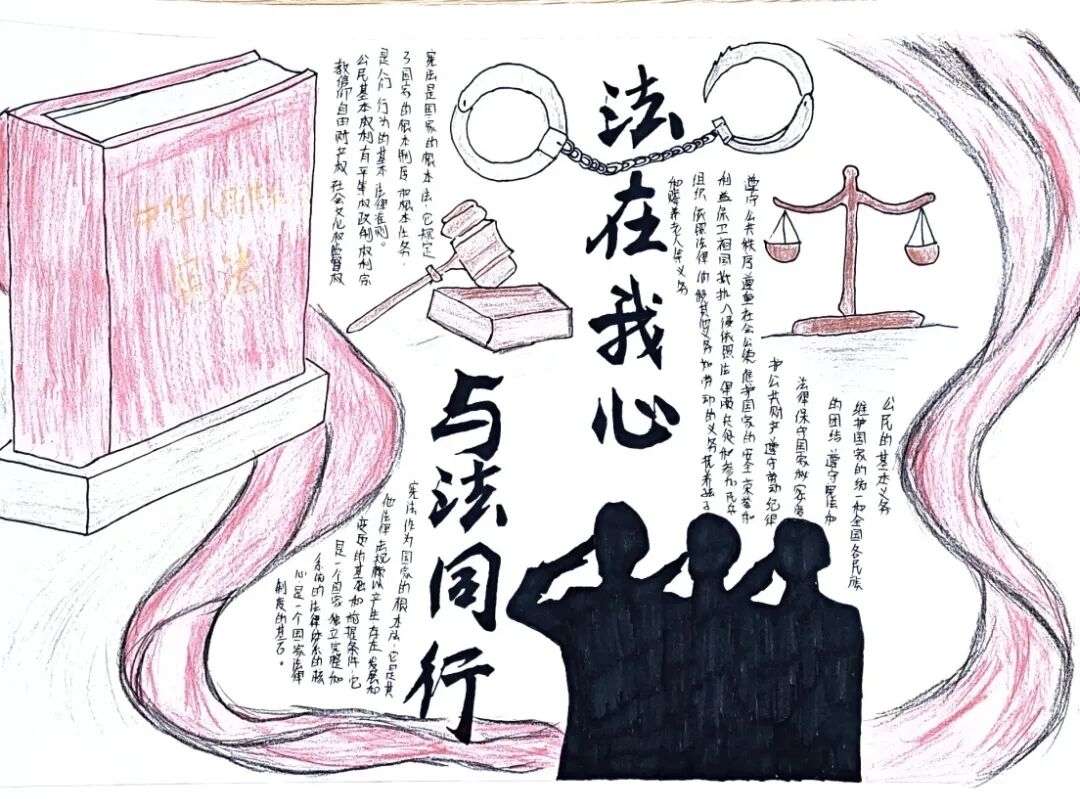 法在我心
与法同行
中华人民共和
宪法
宪法是国家的根本法，它规定
了国家的根本制度和根本任务，
是人们行为的基本法律准则。
公民基本权利有平等权政制权利宗
教信仰自由财产权社会文化和监督权
遵守公共秩序尊重社会公德维护国家的安全荣誉和
利益保卫祖国抵抗入侵依照法律服兵役和参加民兵
组织依照法律纳税其他义务如劳动的义务抚养孩子
和赡养老人等义务
公民的基本义务
维护国家的统一和全国各民族
的团结遵守宪法和
法律保守国家秘密爱
护公共财产遵守劳动纪律
宪法作为国家的根本法，它是其
他法律法规赖以产生存在发展和
变更的基础和前提条件它
是一个国家独立完整和
系统的法律体系的核
心是一个国家法律
制度的基石。